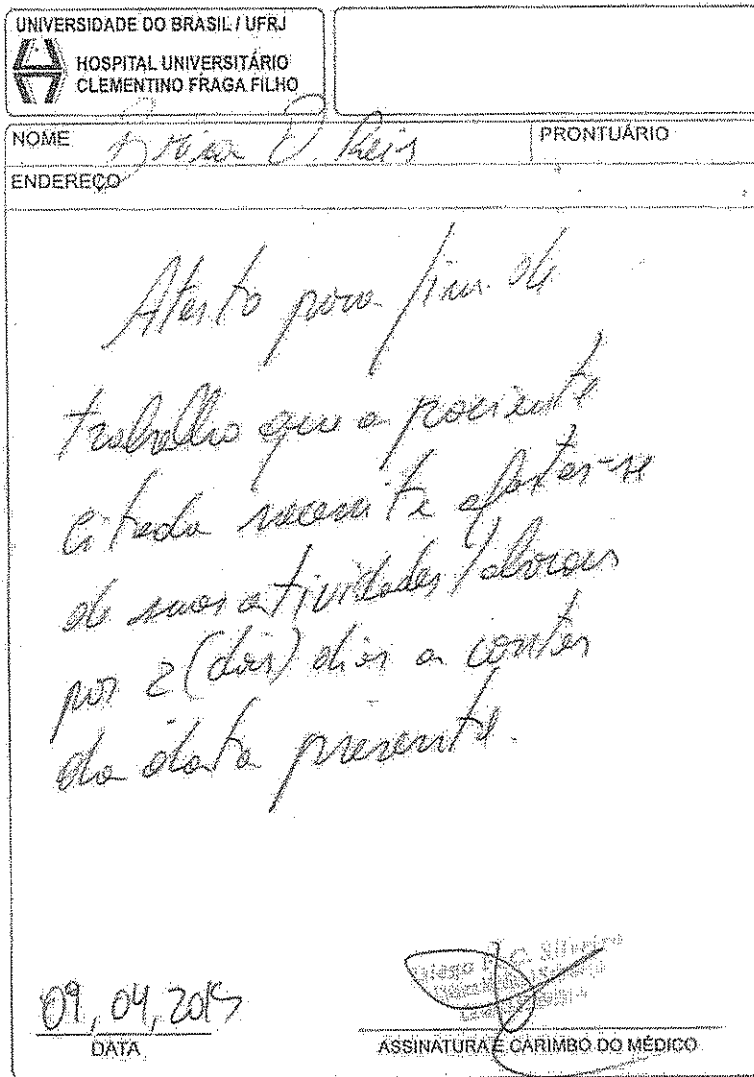 UNIVERSIDADE DO BRASIL / UFRJ
HOSPITAL UNIVERSITÁRIO
CLEMENTINO FRAGA FILHO
NOME Reis
PRONTUÁRIO
ENDEREÇO
Atesto para fins de
trabalho que a paciente
citada necessita afastar-se
de suas atividades laborais
por 2 (dois) dias a contar
da data presente.
09, 04, 2015
DATA
ASSINATURA E CARIMBO DO MÉDICO